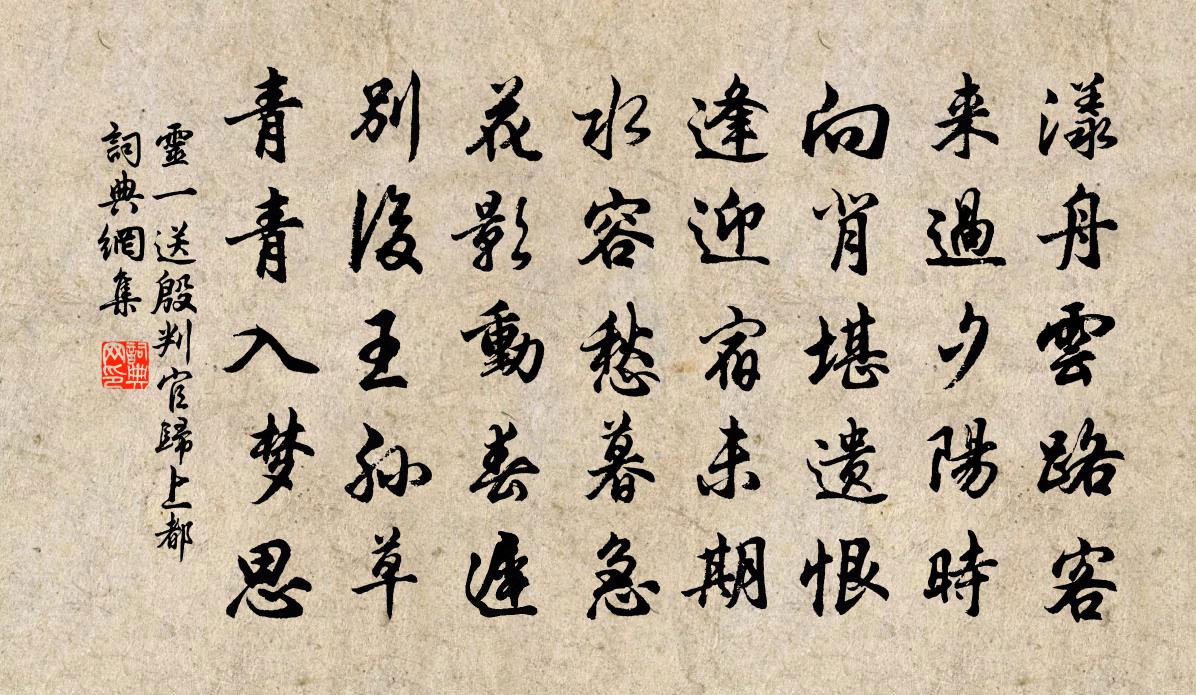 漾舟雲路客
来過夕陽時
向背堪遗恨
逢迎宿未期
水容愁暮急
花影動春遲
别後王孫草
青青入梦思
靈一送殷判官歸上都
詞典網集
詞典网印